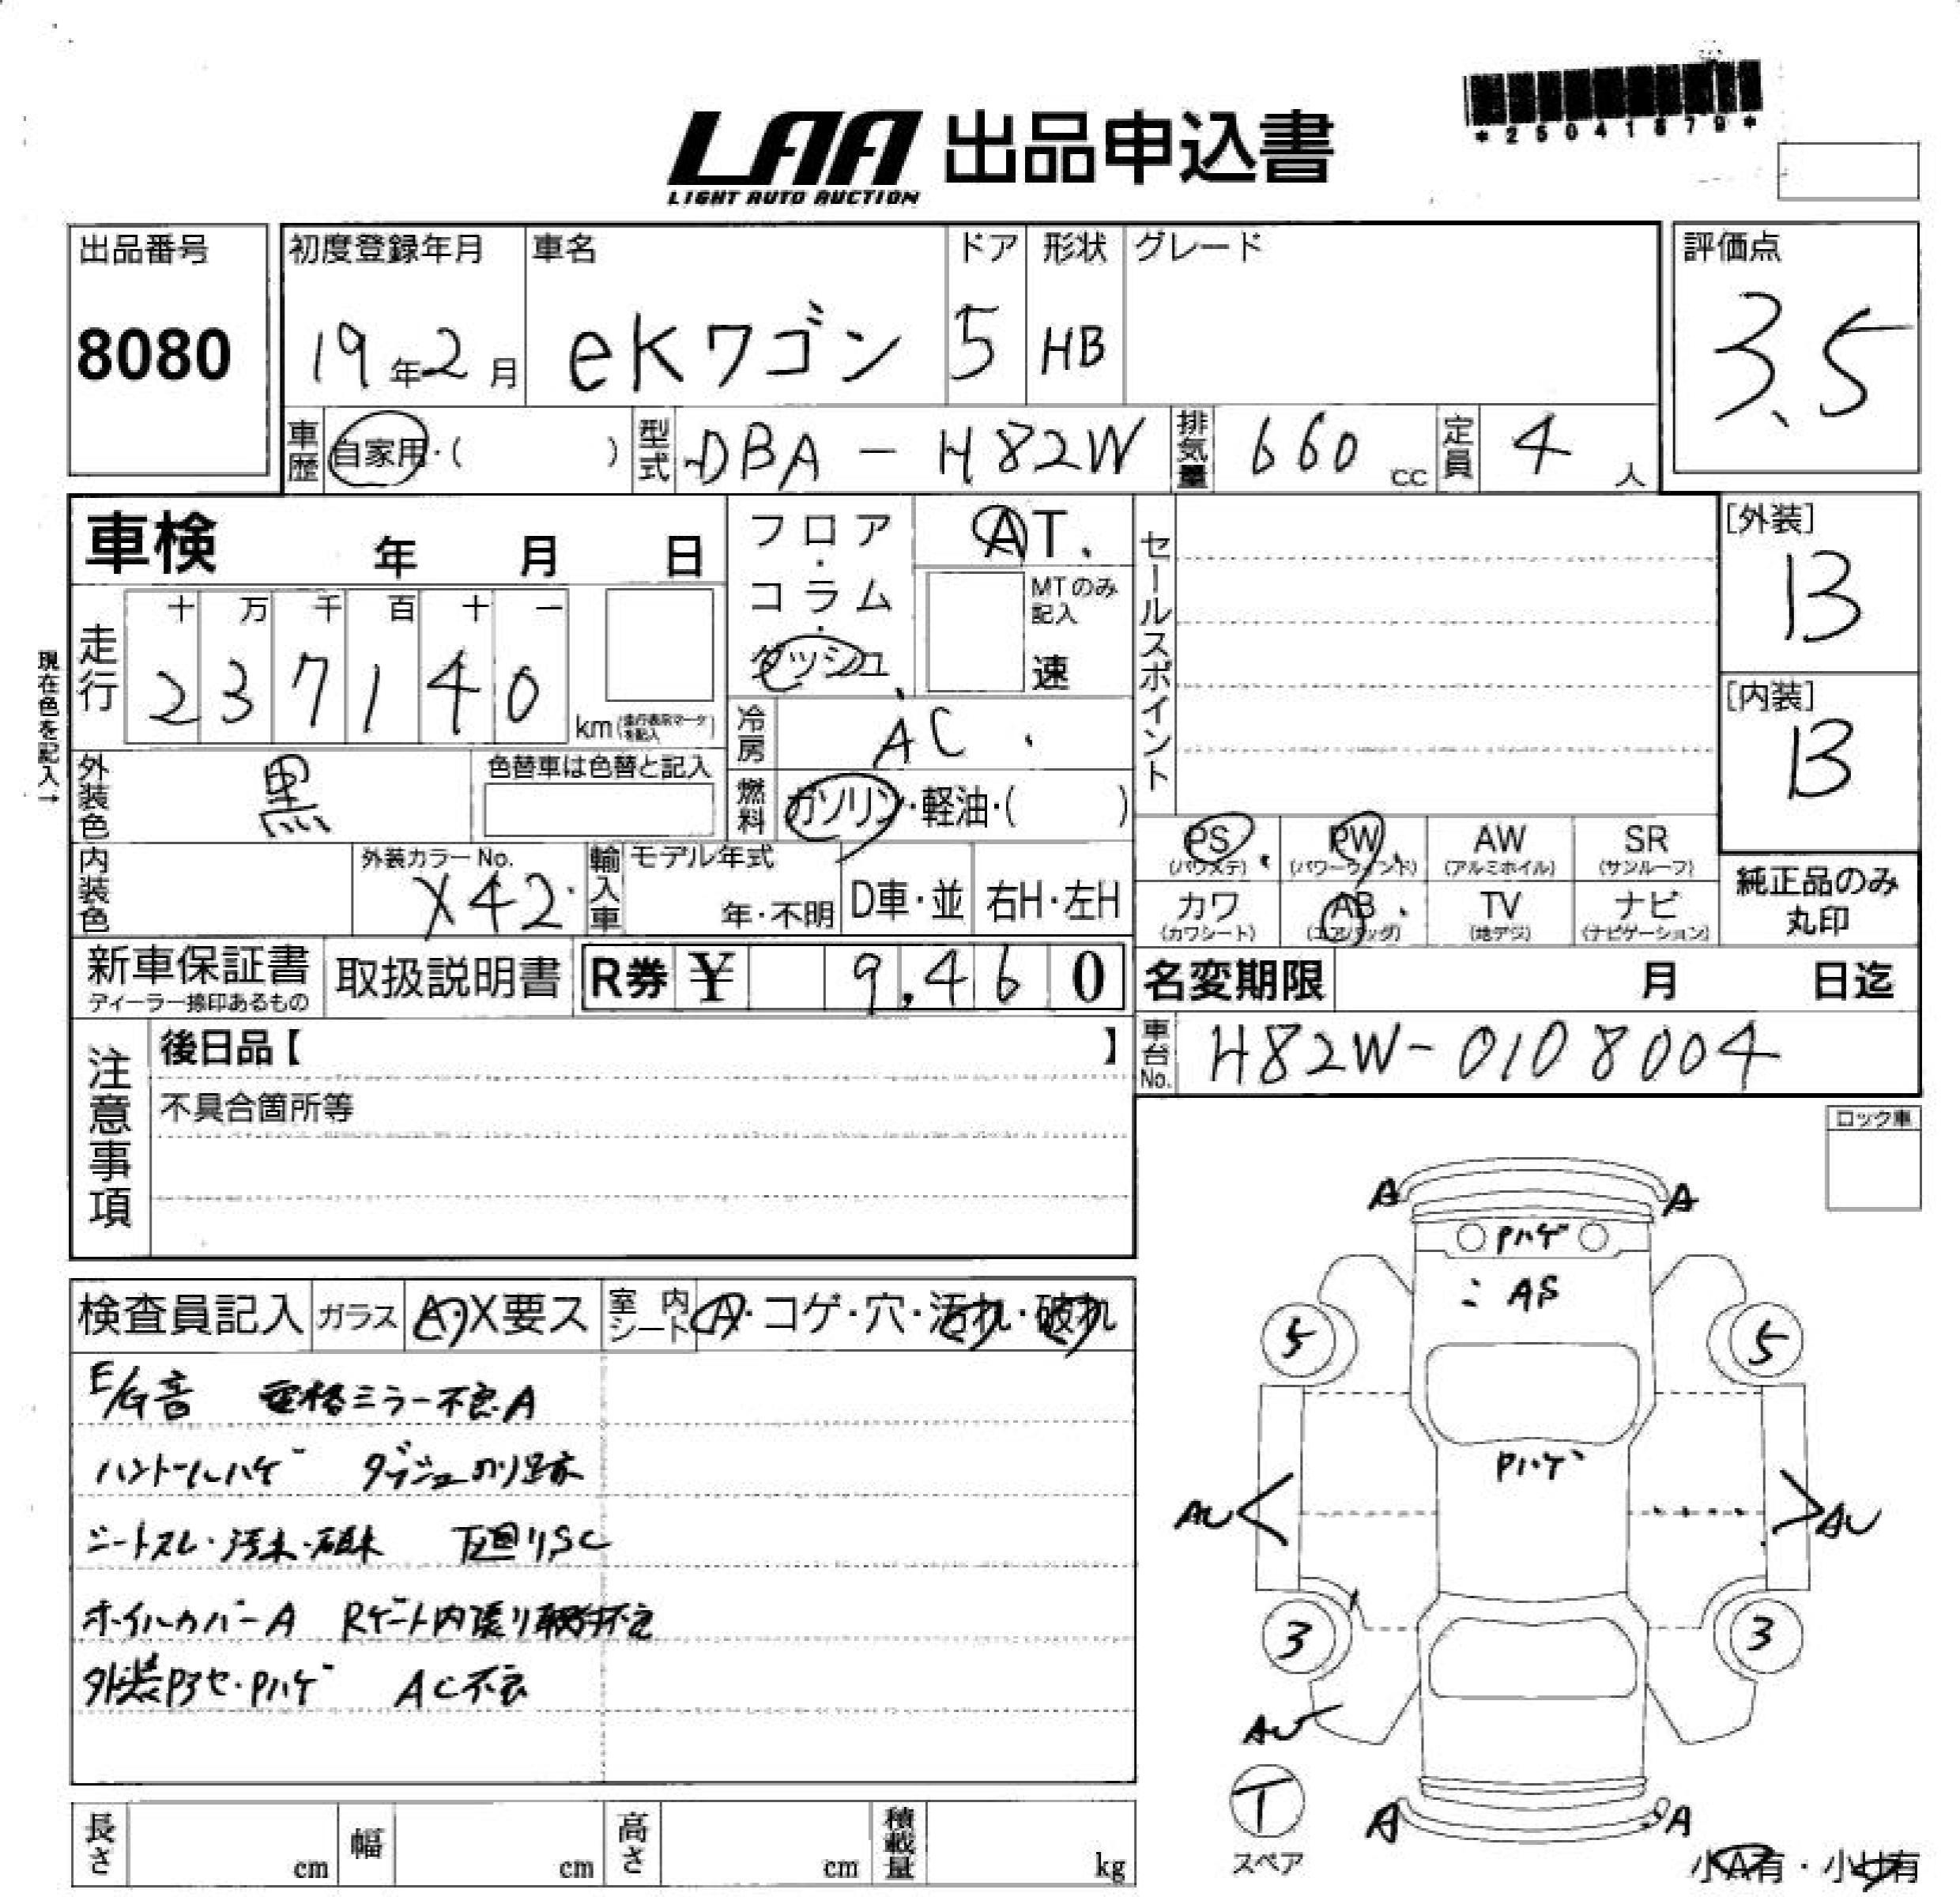 *25041679*
LAA 出品申込書
LIGHT AUTO AUCTION
出品番号 初度登録年月 車名 ドア 形状 グレード 評価点
8080 19年2月 eKワゴン 5 HB 3.5
車歴 自家用・( ) 型式 DBA-H82W 排気量 660 cc 定員 4 人
車検 年 月 日 フロア・コラム・ダッシュ AT. セールスポイント [外装]
B
MTのみ記入
速
現在色を記入→
走行 十 万 千 百 十 一
2 3 7 1 4 0 km(走行表示マークを記入)
冷房 AC. [内装]
B
外装色 黒 色替車は色替と記入 燃料 ガソリン・軽油・( )
PS PW AW SR
(パワステ) (パワーウィンド) (アルミホイル) (サンルーフ)
内装色 外装カラーNo. X42 輸入車 モデル年式 年・不明 D車・並 右H・左H
カワ AB TV ナビ 純正品のみ
(カワシート) (エアバッグ) (地デジ) (ナビゲーション) 丸印
新車保証書 取扱説明書 R券 ¥ 9,460 名変期限 月 日迄
ディーラー捺印あるもの
注意事項 後日品【 】 車台No. H82W-0108004
不具合箇所等
ロック車
A A
Pハゲ
AS
5 5
Pハゲ
AU AU
3 3
AU
T
スペア
A A
小A有・小U有
検査員記入 ガラス A・X要ス 室内シート A・コゲ・穴・汚れ・破れ
E/G音 電格ミラー不良A
ハンドルハゲ ダッシュのり跡
シートスレ・汚れ・破れ 下廻りSC
ホイルカバーA Rゲート内張り取付不良
外装Pアセ・Pハゲ AC不良
長さ cm 幅 cm 高さ cm 積載量 kg